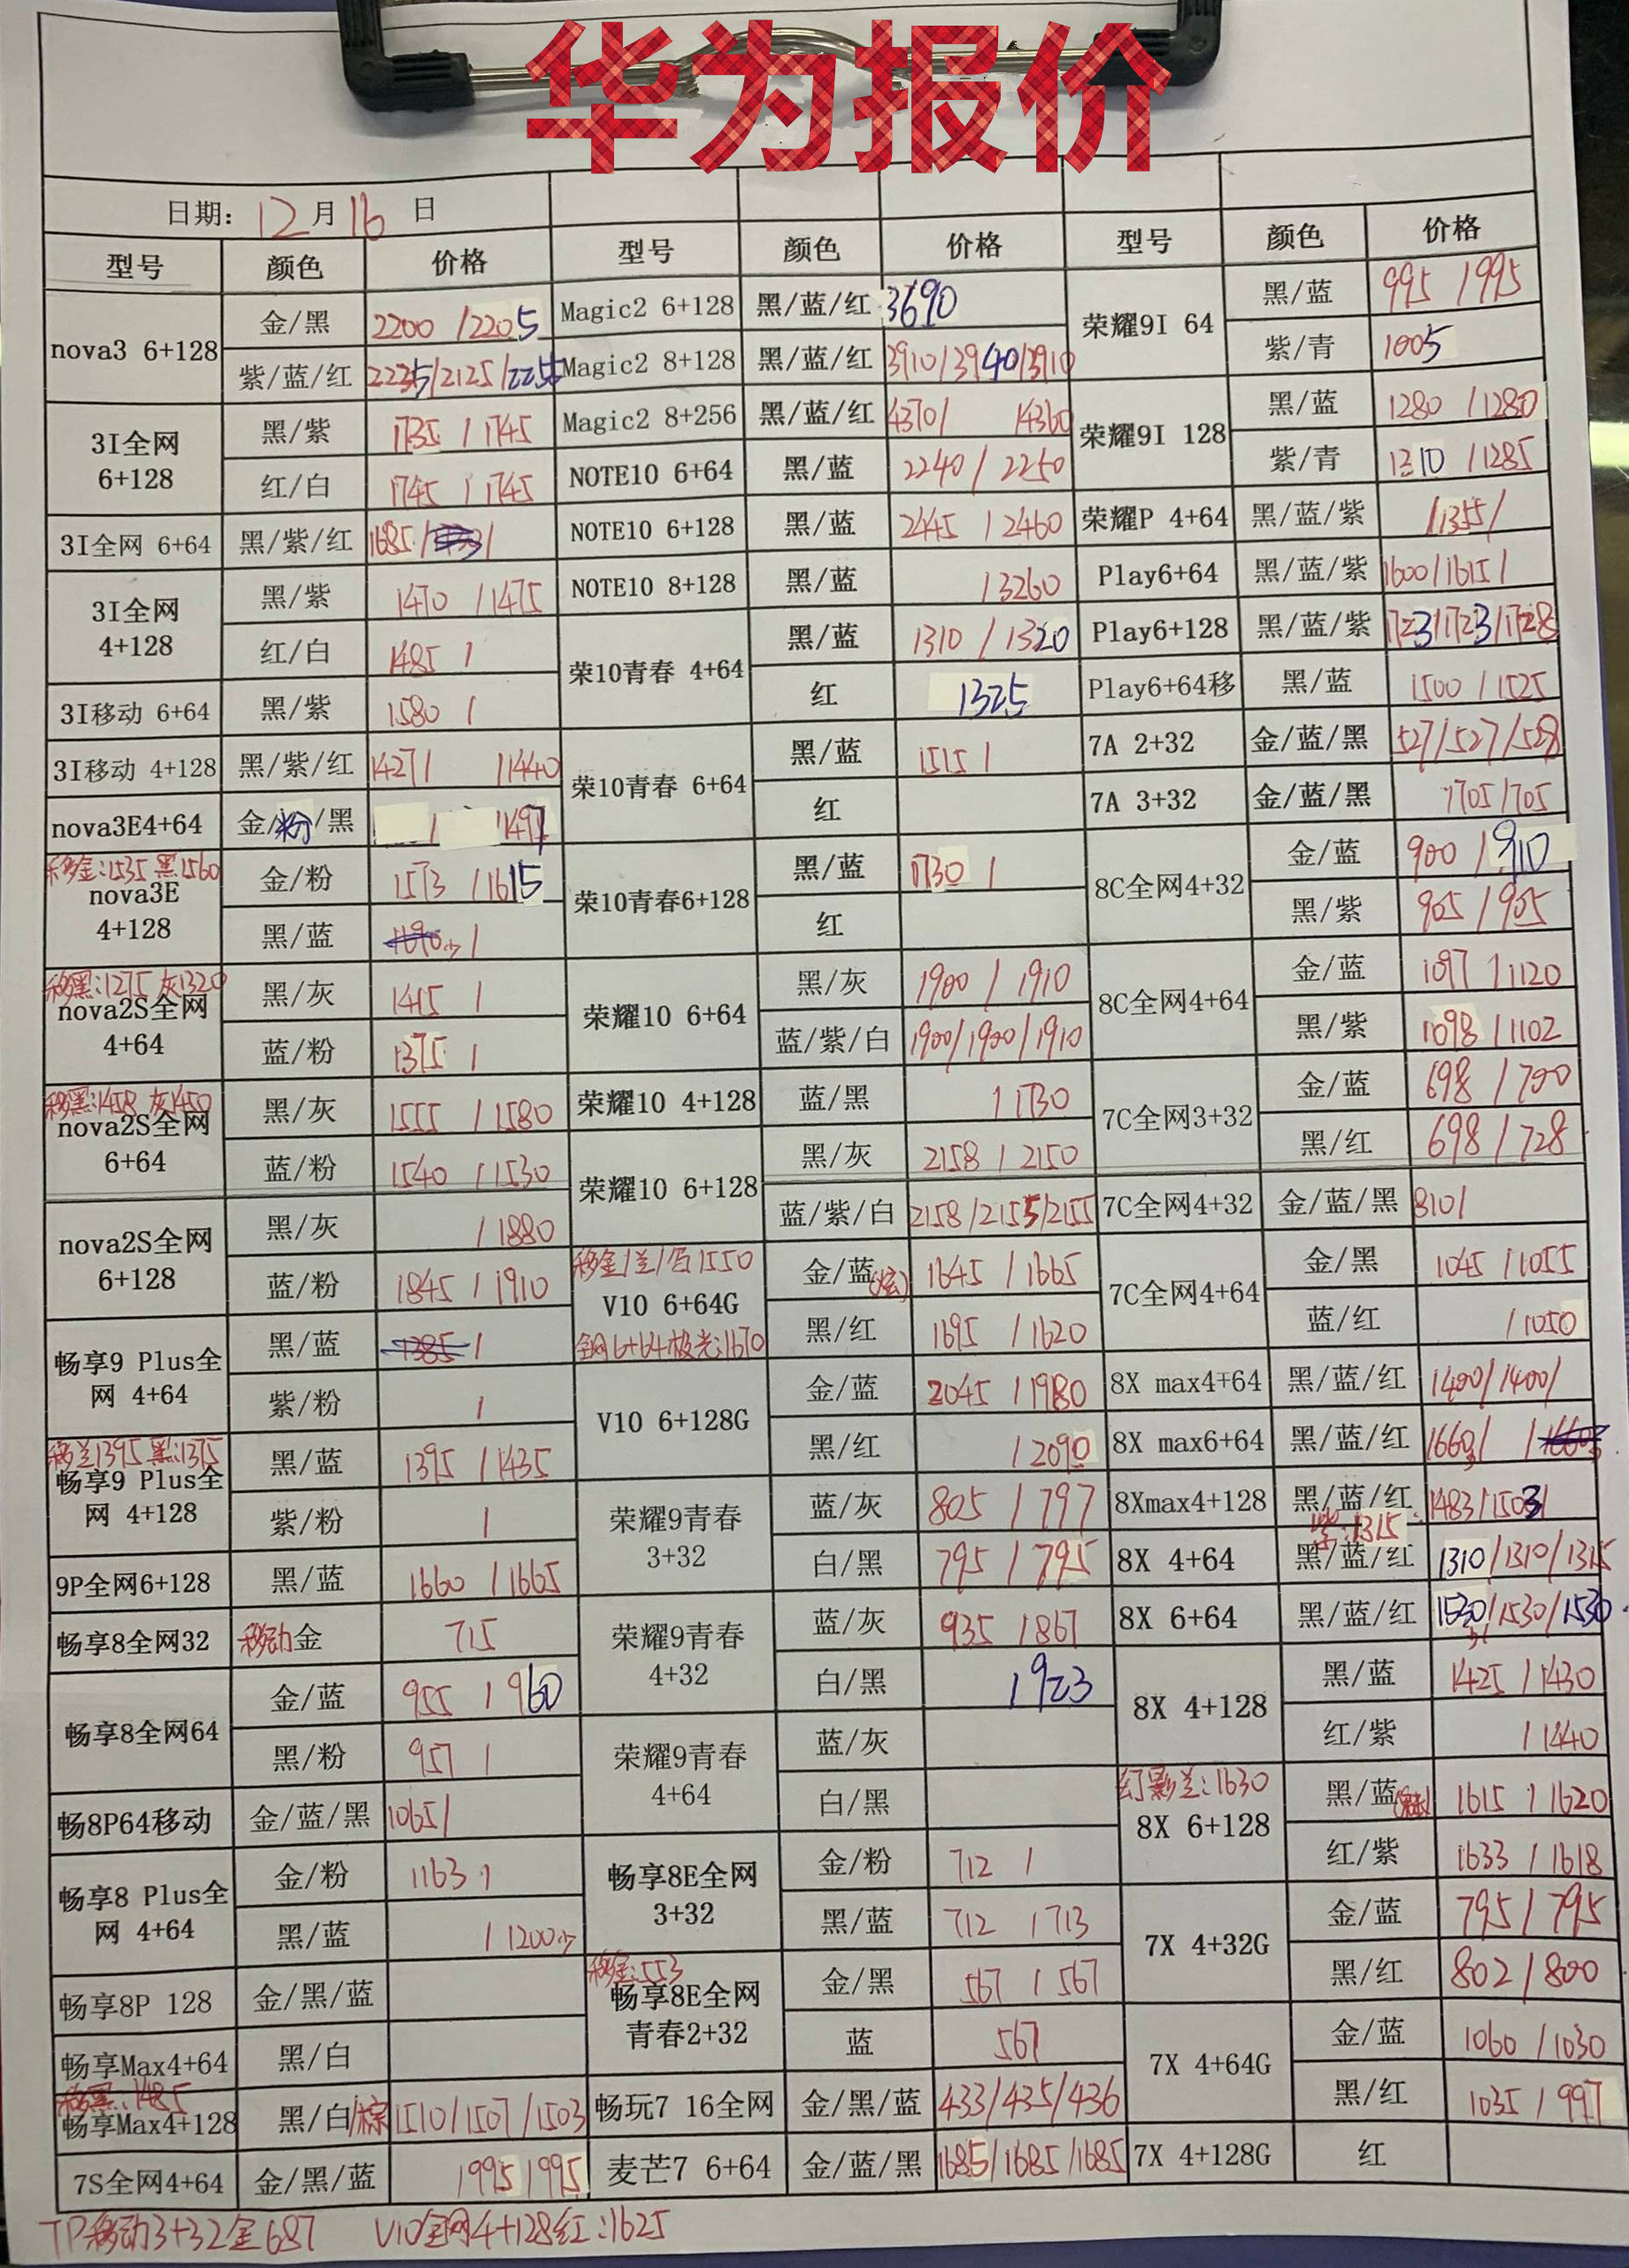 华为报价
日期: 12 月 16 日
型号 颜色 价格 型号 颜色 价格 型号 颜色 价格
nova3 6+128 金/黑 2200 /2205
紫/蓝/红 2235/2125/2255
3I全网 6+128 黑/紫 1735 / 1745
红/白 1745 / 1745
3I全网 6+64 黑/紫/红 1685/
3I全网 4+128 黑/紫 1470 / 1475
红/白 1485 /
3I移动 6+64 黑/紫 1580 /
3I移动 4+128 黑/紫/红 1427/ /1440
nova3E4+64 金/粉/黑 / 1497
移金:1535 黑1560
nova3E 4+128 金/粉 1573 /1615
黑/蓝 /
移黑:1275 灰1320
nova2S全网 4+64 黑/灰 1415 /
蓝/粉 1375 /
移黑:1458 灰1450
nova2S全网 6+64 黑/灰 1555 / 1580
蓝/粉 1540 / 1530
nova2S全网 6+128 黑/灰 / 1880
蓝/粉 1845 / 1910
畅享9 Plus全网 4+64 黑/蓝 1385 /
紫/粉 /
移兰1395 黑:1375
畅享9 Plus全网 4+128 黑/蓝 1395 / 1435
紫/粉 /
9P全网6+128 黑/蓝 1660 / 1665
畅享8全网32 移动金 715
畅享8全网64 金/蓝 955 / 960
黑/粉 957 /
畅8P64移动 金/蓝/黑 1065/
畅享8 Plus全网 4+64 金/粉 1163 /
黑/蓝 / 1200少
畅享8P 128 金/黑/蓝
畅享Max4+64 黑/白
移黑:1485
畅享Max4+128 黑/白/棕 1510/1507/1503
7S全网4+64 金/黑/蓝 /995/995
Magic2 6+128 黑/蓝/红 3690
Magic2 8+128 黑/蓝/红 3910/3940/3910
Magic2 8+256 黑/蓝/红 4370/ /4360
NOTE10 6+64 黑/蓝 2240 / 2250
NOTE10 6+128 黑/蓝 2445 / 2460
NOTE10 8+128 黑/蓝 / 3260
荣10青春 4+64 黑/蓝 1310 / 1320
红 1325
荣10青春 6+64 黑/蓝 1515 /
红
荣10青春6+128 黑/蓝 1730 /
红
荣耀10 6+64 黑/灰 1900 / 1910
蓝/紫/白 1900/1900/1910
荣耀10 4+128 蓝/黑 / 1730
荣耀10 6+128 黑/灰 2158 / 2150
蓝/紫/白 2158/2155/2155
移金/兰/白1550
V10 6+64G 金/蓝(炫) 1645 / 1665
全网6+64极光:1670
黑/红 1695 / 1620
V10 6+128G 金/蓝 2045 / 1980
黑/红 / 2090
荣耀9青春 3+32 蓝/灰 805 / 797
白/黑 795 / 795
荣耀9青春 4+32 蓝/灰 935 / 867
白/黑 / 923
荣耀9青春 4+64 蓝/灰
白/黑
畅享8E全网 3+32 金/粉 712 /
黑/蓝 712 / 713
移金:553
畅享8E全网 青春2+32 金/黑 567 / 567
蓝 567
畅玩7 16全网 金/黑/蓝 433/435/436
麦芒7 6+64 金/蓝/黑 1685/1685/1685
荣耀9I 64 黑/蓝 995 /995
紫/青 1005
荣耀9I 128 黑/蓝 1280 /1280
紫/青 1310 /1285
荣耀P 4+64 黑/蓝/紫 /1355/
Play6+64 黑/蓝/紫 1600/1615/
Play6+128 黑/蓝/紫 1723/1723/1728
Play6+64移 黑/蓝 1500 / 1525
7A 2+32 金/蓝/黑 527/527/528
7A 3+32 金/蓝/黑 /705/705
8C全网4+32 金/蓝 900 / 910
黑/紫 905 / 905
8C全网4+64 金/蓝 1097 / 1120
黑/紫 1098 / 1102
7C全网3+32 金/蓝 698 / 700
黑/红 698 / 728
7C全网4+32 金/蓝/黑 810/
7C全网4+64 金/黑 1045 / 1055
蓝/红 / 1050
8X max4+64 黑/蓝/红 1400/1400/
8X max6+64 黑/蓝/红 1660少/ /1660少
8Xmax4+128 黑/蓝/红 1483/1503/
紫:1315
8X 4+64 黑/蓝/红 1310/1310/1315
8X 6+64 黑/蓝/红 1530/1530/1530
8X 4+128 黑/蓝 1425 / 1430
红/紫 / 1440
幻影兰:1630
8X 6+128 黑/蓝 1615 / 1620
红/紫 1633 / 1618
7X 4+32G 金/蓝 795 / 795
黑/红 802 / 800
7X 4+64G 金/蓝 1060 / 1030
黑/红 1035 / 997
7X 4+128G 红
TP移动3+32金687 V10全网4+128红:1625